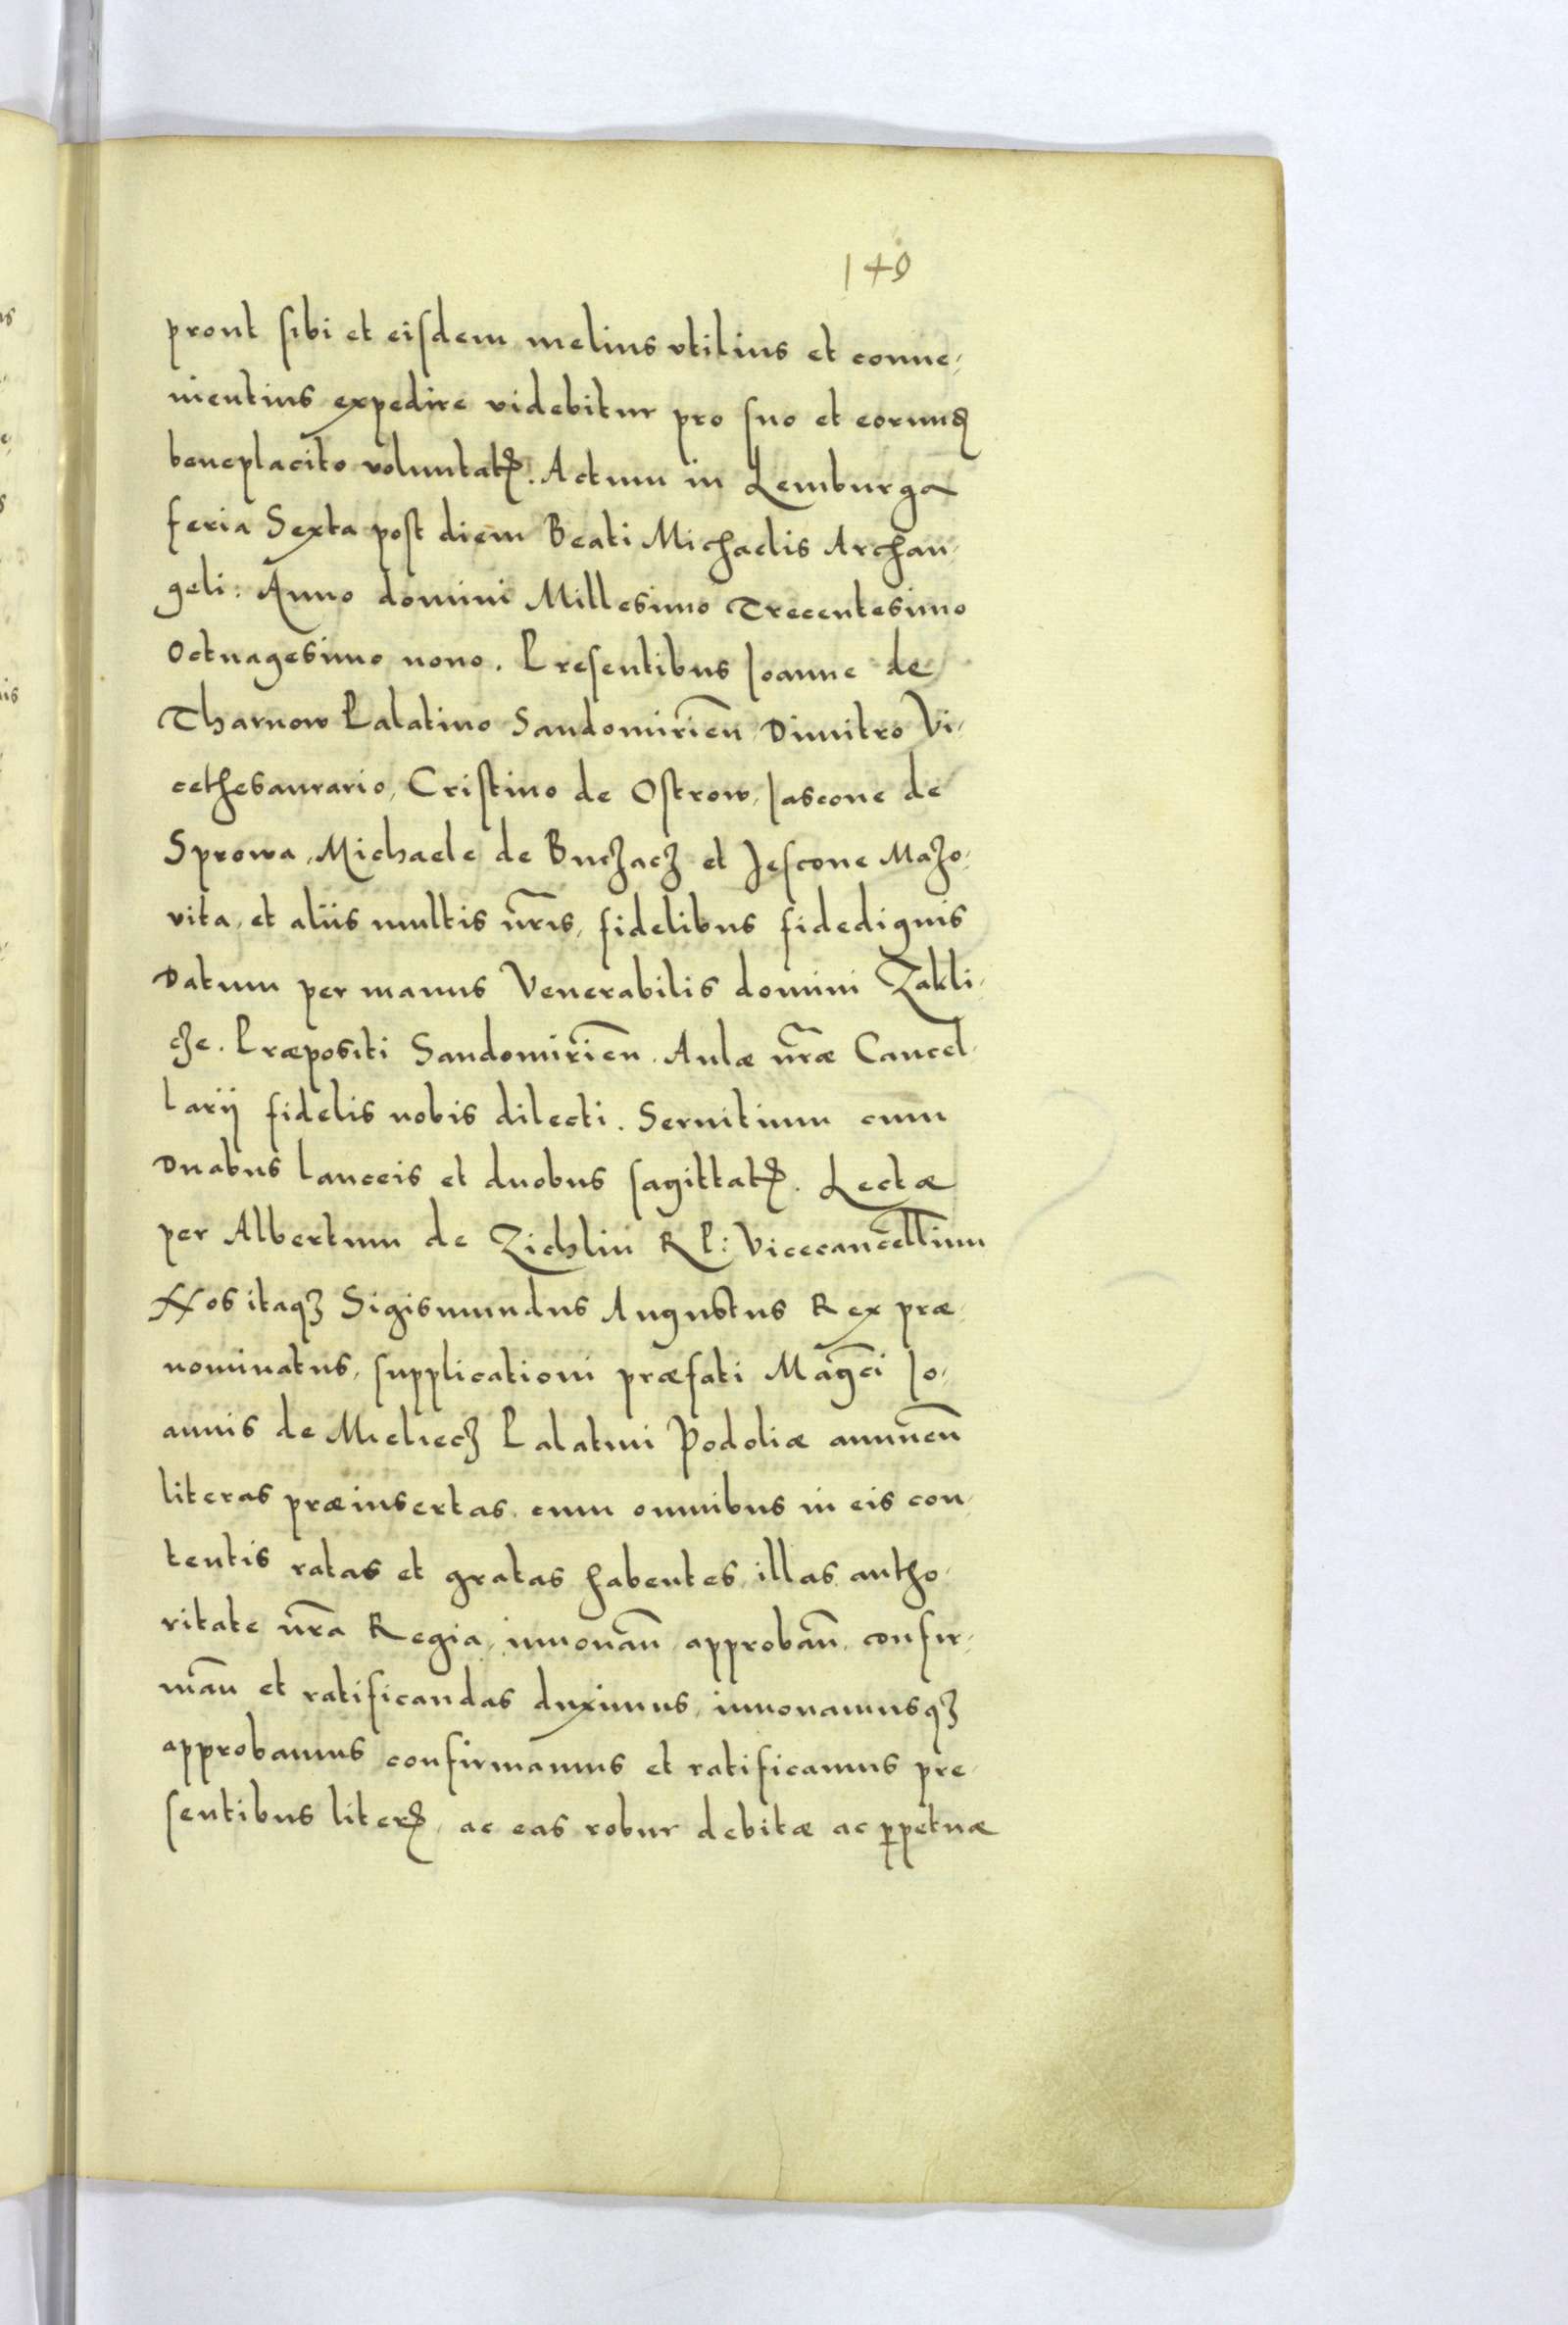 149
prout sibi et eisdem melius vtilius et conue,
nientius expedire videbitur pro suo et eorundꝫ
beneplacito voluntatꝭ. Actum in Lemburga
feria Sexta post diem Beati Michaelis Archan,
geli: Anno domini Millesimo Trecentesimo
Octuagesimo nono. Presentibus Ioanne de
Tharnow Palatino Sandomirień Dimitro Vi,
cethesaurario, Cristino de Ostrow, Iascone de
Sprowa, Michaele de Buczacz et Jescone Mazo,
vita, et aliis multis nr̃is, fidelibus fidedignis
Datum per manus Venerabilis domini Zakli,
cze. Præpositi Sandomirień. Aulæ nr̃æ Cancel,
larij fidelis nobis dilecti. Seruitium cum
Duabus lanceis et duobus sagittatꝭ. Lectæ
per Albertum de Zichlin R P: Vicecancellium
Nos itaqꝫ Sigismundus Augustus Rex præ,
nominatus, supplicationi præfati Mag̃ci Io,
annis de Mieliecz Palatini Podoliæ annueñ
literas præinsertas cum omnibus in eis con,
tentis ratas et gratas habentes, illas autho,
ritate nr̃a Regia, innouañ, approbañ, confir,
mañ et ratificandas duximus, innouamusqꝫ
approbamus confirmamus et ratificamus pre,
sentibus literꝭ, ac eas robur debitæ ac ꝑpetuæ